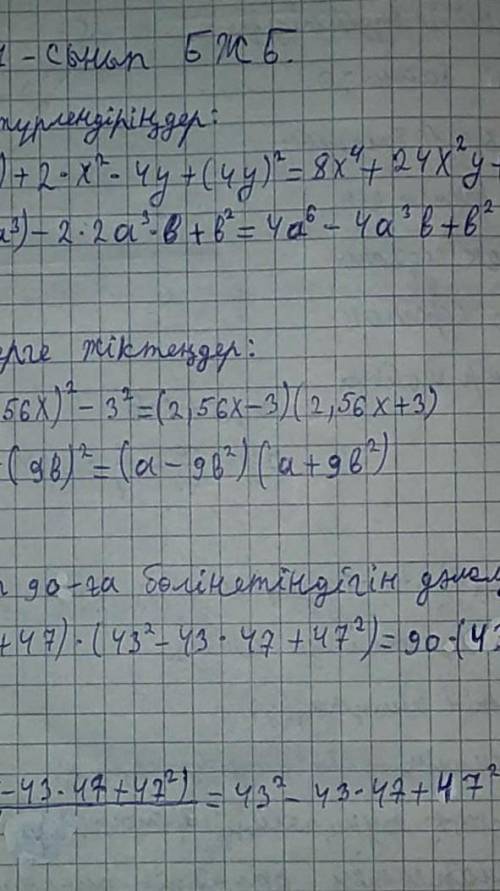 -сынып БЖБ.
түрлендіріңдер:
)+2·x²·4y+(4y)²=8x⁴+24x²y+
a³)-2·2a³·b+b²=4a⁶-4a³b+b²
ерге жіктеңдер:
56x)²-3²=(2,56x-3)(2,56x+3)
(9b)²=(a-9b²)(a+9b²)
90-ға бөлінетіндігін дәлел
+47)·(43²-43·47+47²)=90·(4
-43·47+47²) = 43²-43·47+47²